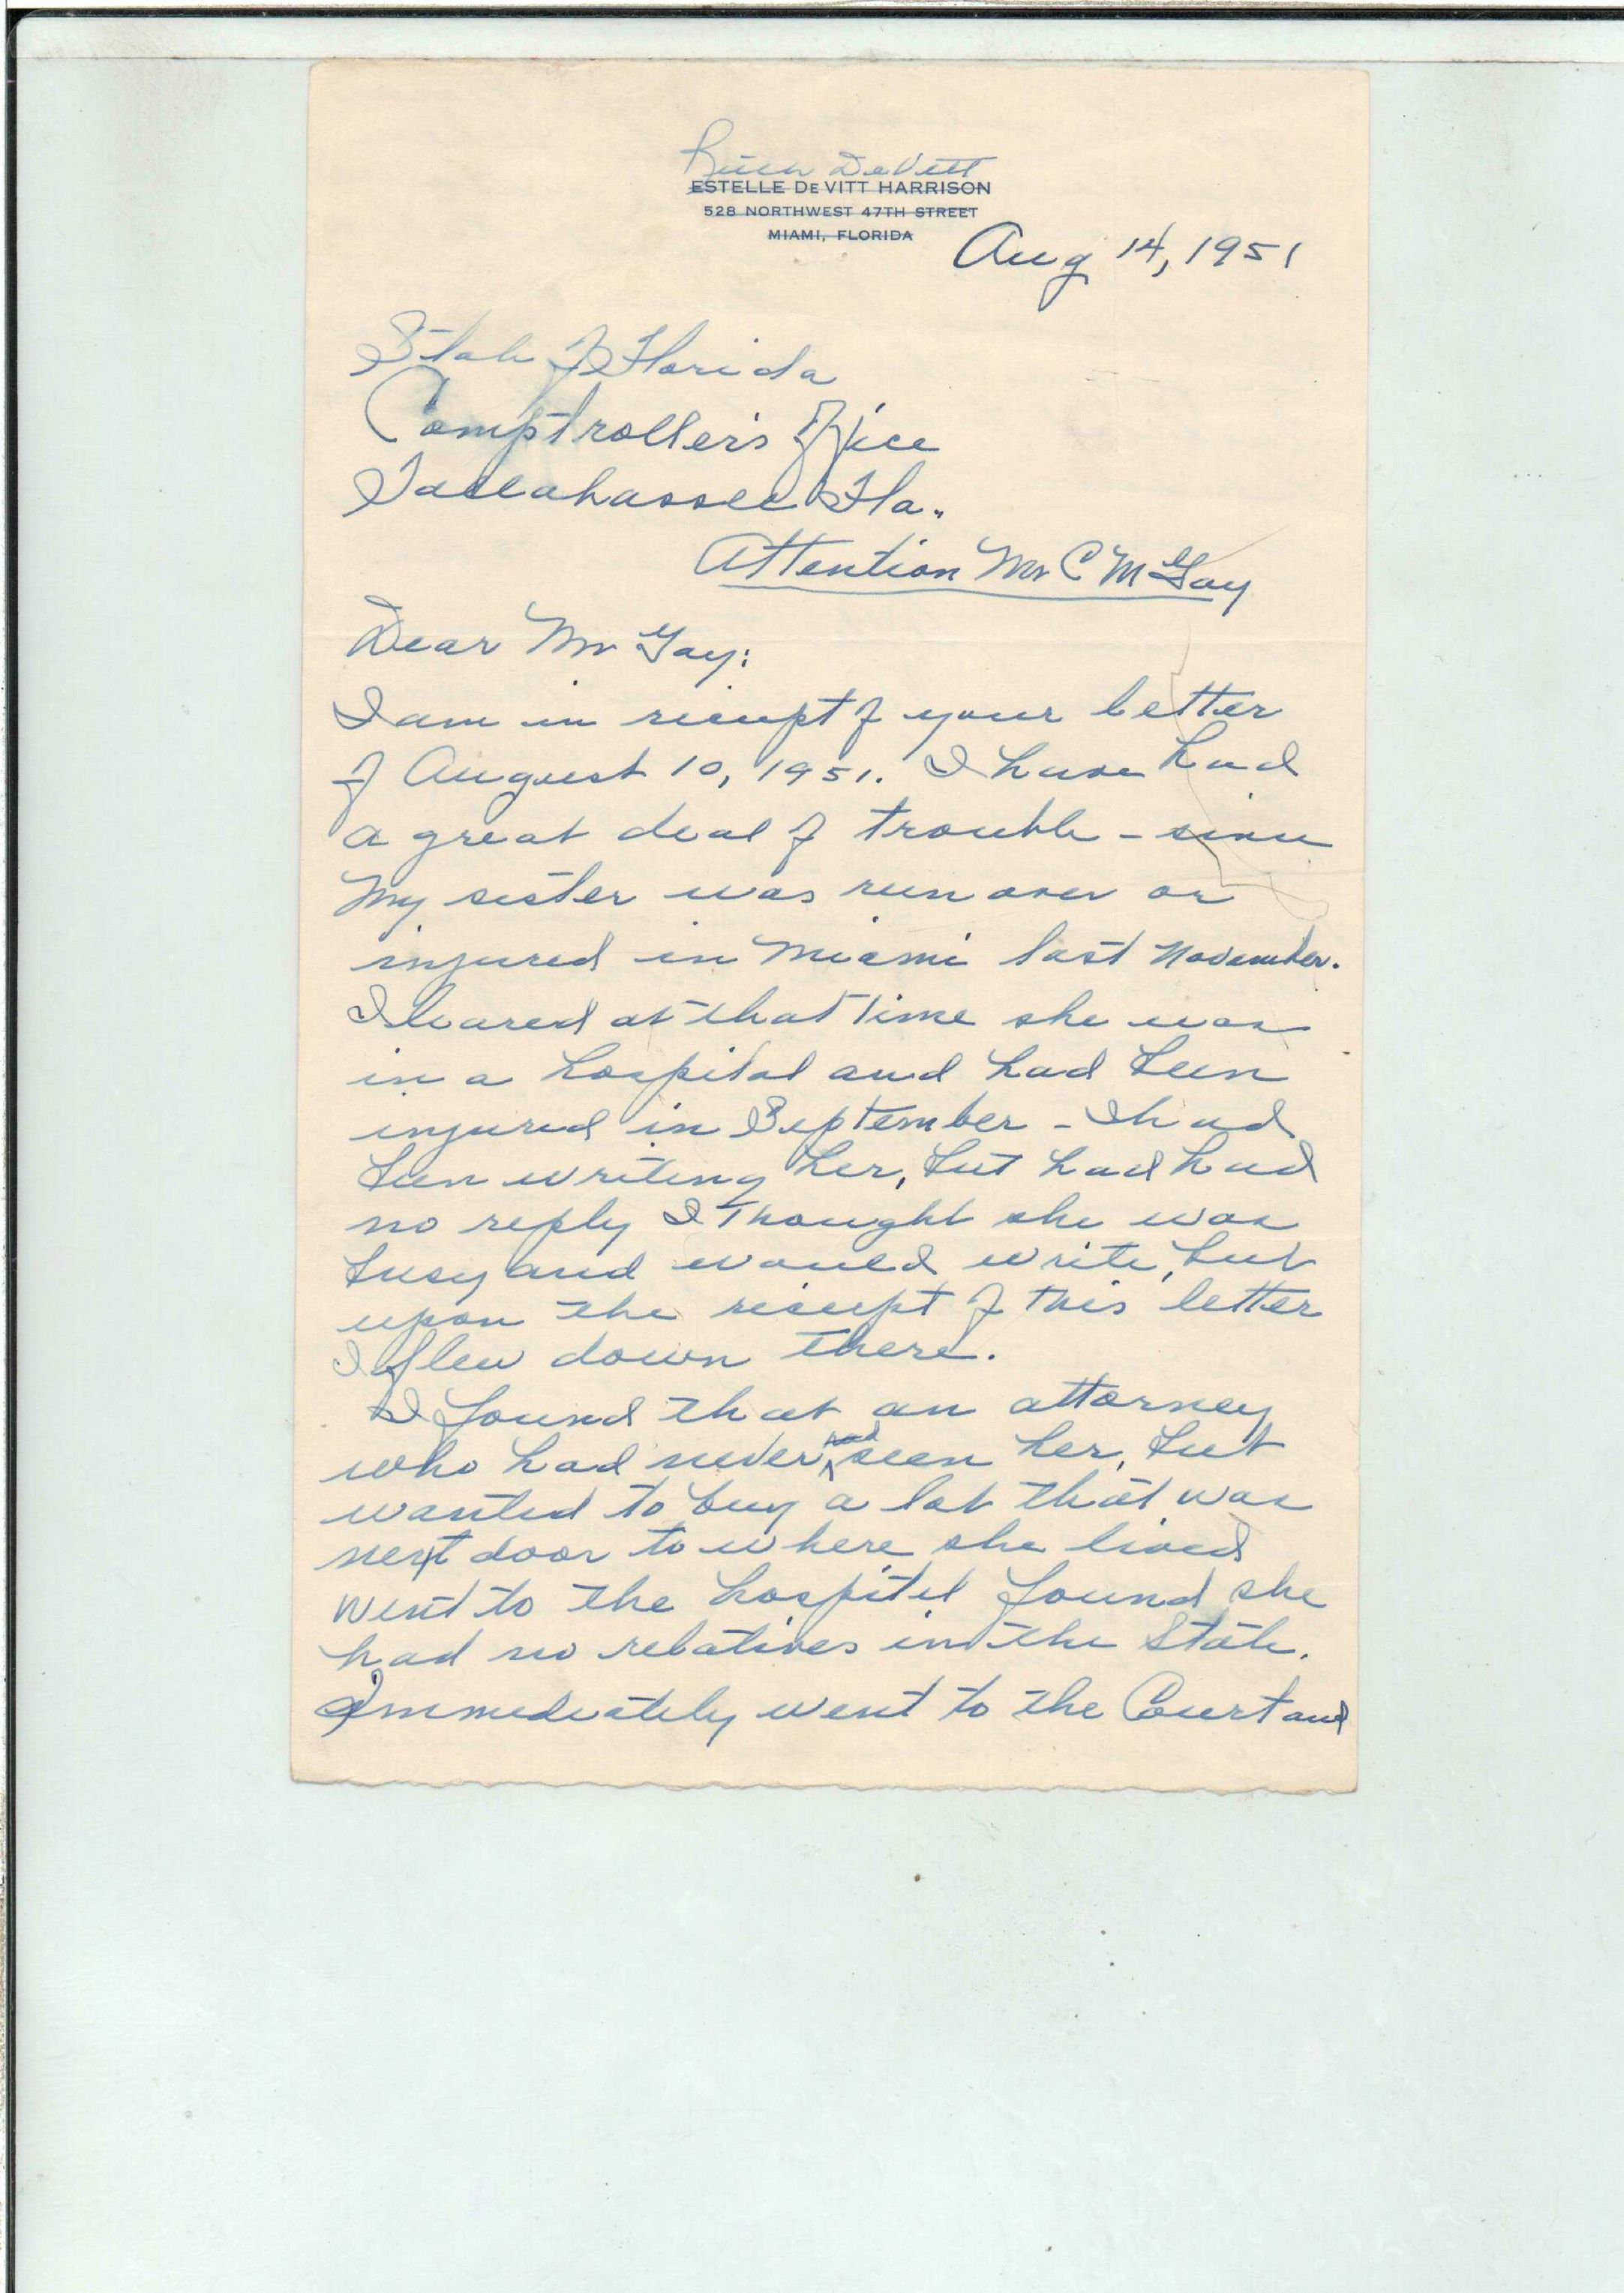 Ruth DeVitt
ESTELLE DE VITT HARRISON
528 NORTHWEST 47TH STREET
MIAMI, FLORIDA
Aug 14, 1951
State of Florida
Comptroller's Office
Tallahassee Fla.
Attention Mr C M Gay
Dear Mr Gay:
I am in reciept of your letter
of August 10, 1951. I have had
a great deal of trouble - since
my sister was run over or
injured in Miami last November.
I heared at that time she was
in a hospital and had been
injured in September - I had
been writing her, but had had
no reply I thought she was
busy and would write, but
upon the reciept of this letter
I flew down there.
I found that an attorney
who had never had seen her, but
wanted to buy a lot that was
next door to where she lived
went to the hospital found she
had no relatives in the State.
Immediately went to the Court and